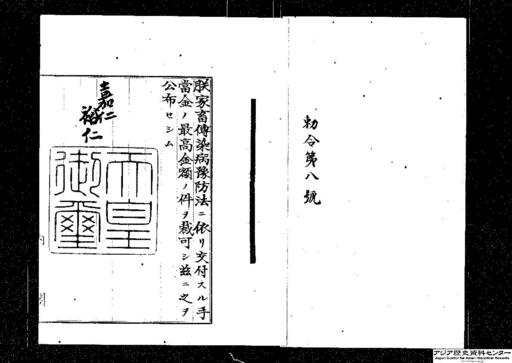 勅令第八號
朕家畜傳染病豫防法ニ依リ交付スル手
當金ノ最高金額ノ件ヲ裁可シ茲ニ之ヲ
公布セシム
嘉仁
裕仁
天皇
御璽
アジア歴史資料センター
Japan Center for Asian Historical Records